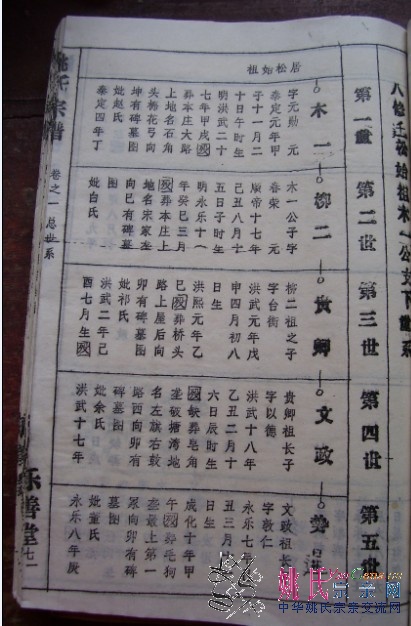 八修迁松始祖木一公文下世系
第一世
第二世
第三世
第四世
第五世
居松始祖
木一
柳二
贵卿
文政
字元勋 元
泰定元年甲
子十一月二
十日午时生
明洪武二十
七年甲戌殁
葬本庄大路
上地名石角
头杨花弓向
坤有碑墓图
妣赵氏
泰定四年丁
木一公子字
春荣 元
顺帝十七年
己丑八月十
五日子时生
明永乐十一
年癸巳三月
殁葬本庄上
地名宋家垄
向巳有碑墓
图
妣白氏
柳二祖之子
字台衡
洪武元年戊
申四月初八
日生
洪熙元年乙
巳殁葬桥头
路上屋后向
卯有碑墓图
妣祁氏
洪武二年己
酉七月生殁
贵卿祖长子
字以德
洪武十八年
乙丑二月十
六日辰时生
殁缺葬皂角
垄破塘湾地
名左旗右鼓
路西向卯有
碑墓图
妣余氏
洪武十七年
文政祖长
字敦仁
永乐七年
丑三月
日生
成化十年甲
午殁葬毛狗
垄最上第一
冢向卯有碑
墓图
妣董氏
永乐八年庚
姚氏宗谱
卷之一 总世系
乐善堂
七一
姚氏宗亲网
中华姚氏宗亲交流网